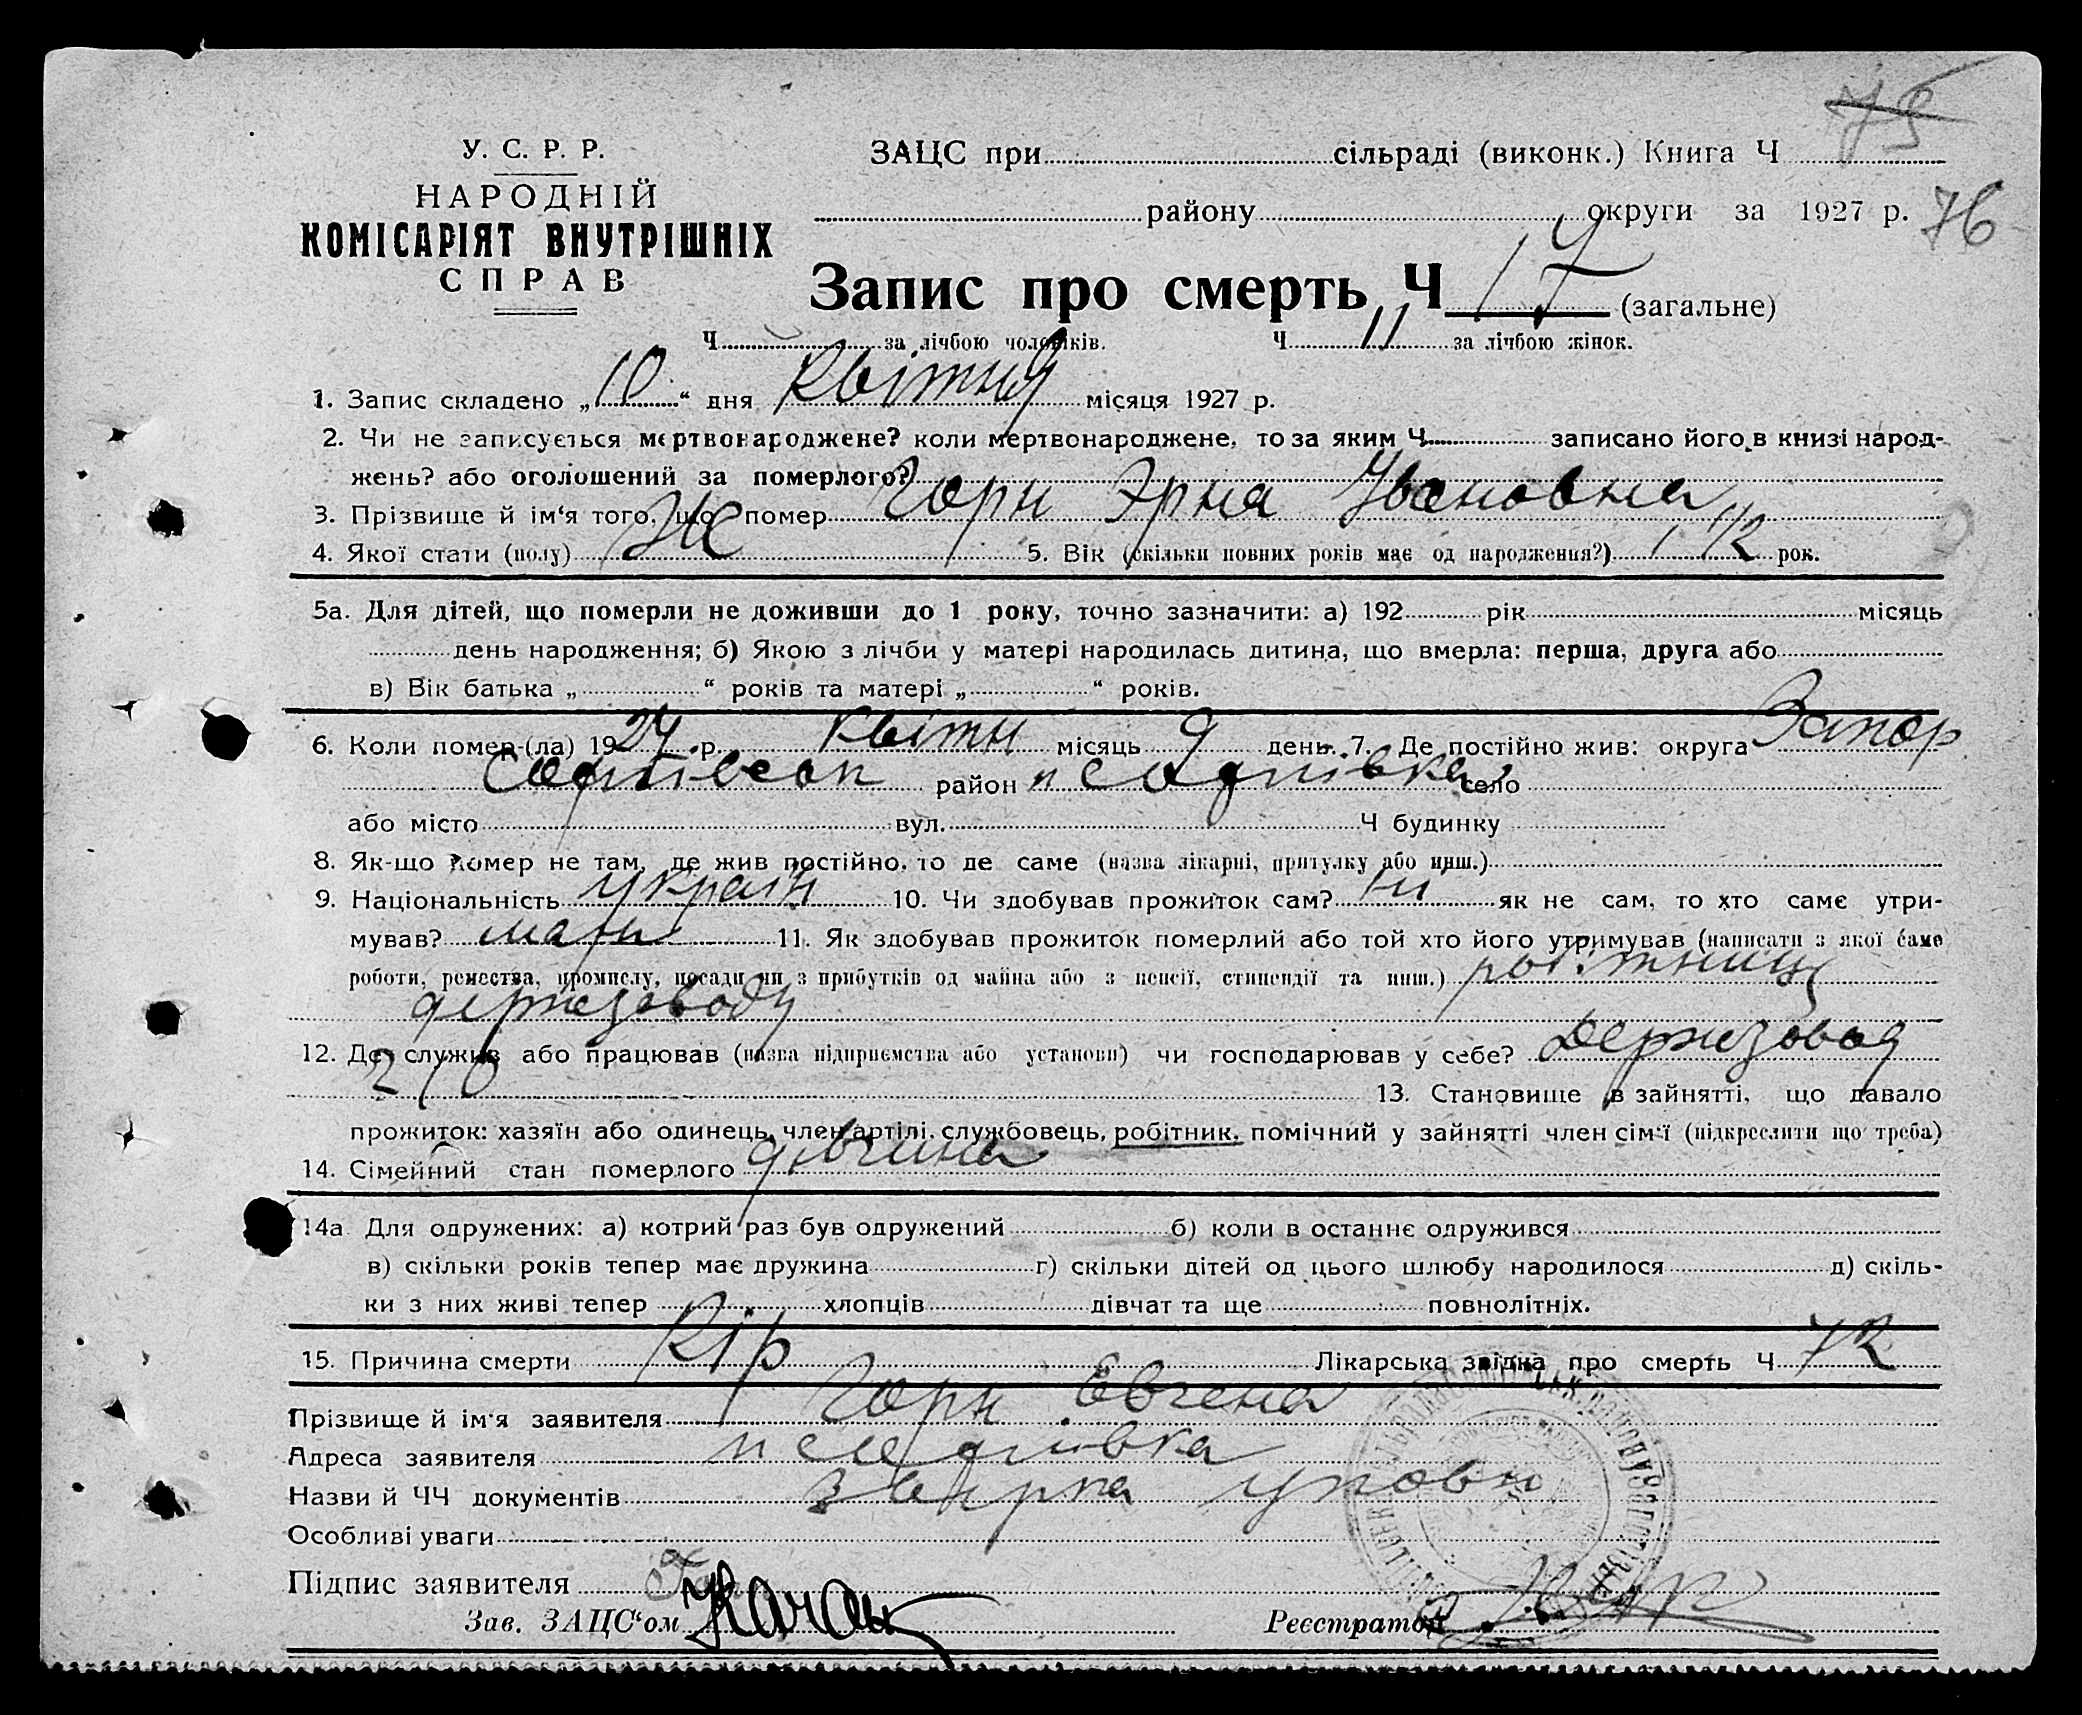 75
У. С. Р. Р.
НАРОДНІЙ
КОМІСАРІЯТ ВНУТРІШНІХ
СПРАВ
ЗАЦС при сільраді (виконк.) Книга Ч
району округи за 1927 р. 76
Запис про смерть Ч 17 (загальне)
Ч за лічбою чоловіків. Ч 11 за лічбою жінок.
1. Запис складено „10“ дня Квітня місяця 1927 р.
2. Чи не записується мертвонароджене? коли мертвонароджене, то за яким Ч записано його в книзі народ-
жень? або оголошений за померлого?
3. Прізвище й ім‘я того, що помер Горн Эрна Ивановна
4. Якої стати (полу) Ж 5. Вік (скільки повних років має од народження?) 1 1/2 рок.
5а. Для дітей, що померли не доживши до 1 року, точно зазначити: а) 192 рік місяць
день народження; б) Якою з лічби у матері народилась дитина, що вмерла: перша, друга або
в) Вік батька „ “ років та матері „ “ років.
6. Коли помер-(ла) 1927 р. Квітн місяць 9 день. 7. Де постійно жив: округа Запор
район село
або місто вул. Ч будинку
8. Як-що помер не там, де жив постійно, то де саме (назва лікарні, притулку або инш.)
9. Національність україн 10. Чи здобував прожиток сам? ні як не сам, то хто саме утри-
мував? мати 11. Як здобував прожиток померлий або той хто його утримував (написати з якої саме
роботи, ремества, промислу, посади чи з прибутків од майна або з пенсії, стипендії та инш.) робітниця
держзаводу
12. Де служив або працював (назва підприємства або установи) чи господарював у себе? Держзавод
13. Становище в зайнятті, що давало
прожиток: хазяїн або одинець, член артілі, службовець, робітник, помічний у зайнятті член сім‘ї (підкреслити що треба)
14. Сімейний стан померлого дівчина
14а Для одружених: а) котрий раз був одружений б) коли в останнє одружився
в) скільки років тепер має дружина г) скільки дітей од цього шлюбу народилося д) скіль-
ки з них живі тепер хлопців дівчат та ще повнолітніх.
15. Причина смерти Кір Лікарська звідка про смерть Ч 72
Прізвище й ім‘я заявителя Горн Евгена
Адреса заявителя
Назви й ЧЧ документів
Особливі уваги
Підпис заявителя
Зав. ЗАЦС‘ом
Реєстратор